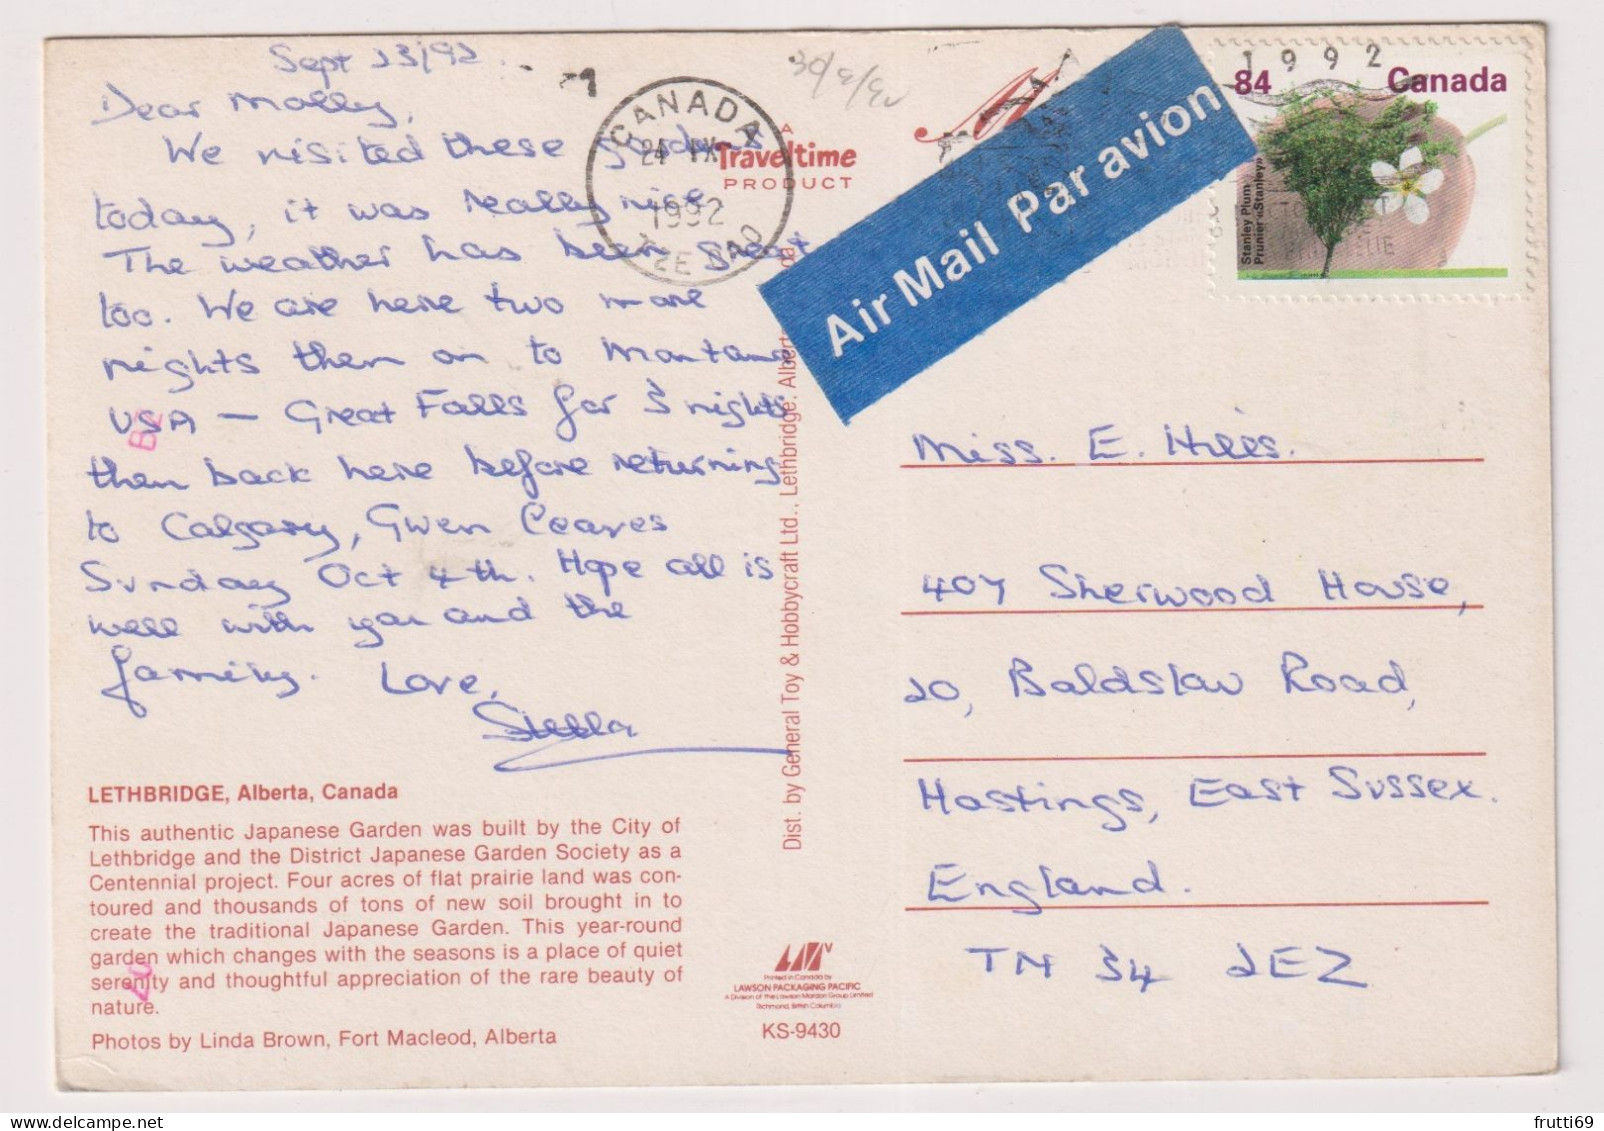 Sept 23/92.
Dear Molly,
We visited these gardens
today, it was really nice
The weather has been great
too. We are here two more
nights then on to Montana
USA — Great Falls for 3 nights
then back here before returning
to Calgary, Gwen leaves
Sunday Oct 4th. Hope all is
well with you and the
family. Love,
Stella
LETHBRIDGE, Alberta, Canada
This authentic Japanese Garden was built by the City of
Lethbridge and the District Japanese Garden Society as a
Centennial project. Four acres of flat prairie land was con-
toured and thousands of tons of new soil brought in to
create the traditional Japanese Garden. This year-round
garden which changes with the seasons is a place of quiet
serenity and thoughtful appreciation of the rare beauty of
nature.
Photos by Linda Brown, Fort Macleod, Alberta
CANADA
24 IX
1992
A
Traveltime
PRODUCT
Dist. by General Toy & Hobbycraft Ltd., Lethbridge, Albert
Air Mail Par avion
1992
84 Canada
Stanley Plum
Prunier «Stanley»
Miss. E. Hills.
407 Sherwood House,
20, Baldslow Road,
Hastings, East Sussex.
England.
TN 34 2EZ
Printed in Canada by
LAWSON PACKAGING PACIFIC
A Division of the Lawson Mardon Group Limited
Richmond, British Columbia
KS-9430
frutti69